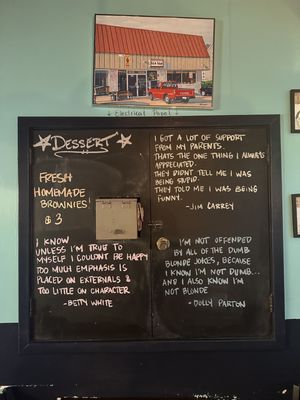 Electrical Panel
DESSERT
FRESH
HOMEMADE
BROWNIES!
$3
I KNOW
UNLESS I'M TRUE TO
MYSELF I COULDN'T BE HAPPY
TOO MUCH EMPHASIS IS
PLACED ON EXTERNALS &
TOO LITTLE ON CHARACTER
-BETTY WHITE
I GOT A LOT OF SUPPORT
FROM MY PARENTS.
THATS THE ONE THING I ALWAYS
APPRECIATED.
THEY DIDNT TELL ME I WAS
BEING STUPID.
THEY TOLD ME I WAS BEING
FUNNY.
-JIM CARREY
I'M NOT OFFENDED
BY ALL OF THE DUMB
BLONDE JOKES, BECAUSE
I KNOW I'M NOT DUMB...
AND I ALSO KNOW I'M
NOT BLONDE
-DOLLY PARTON